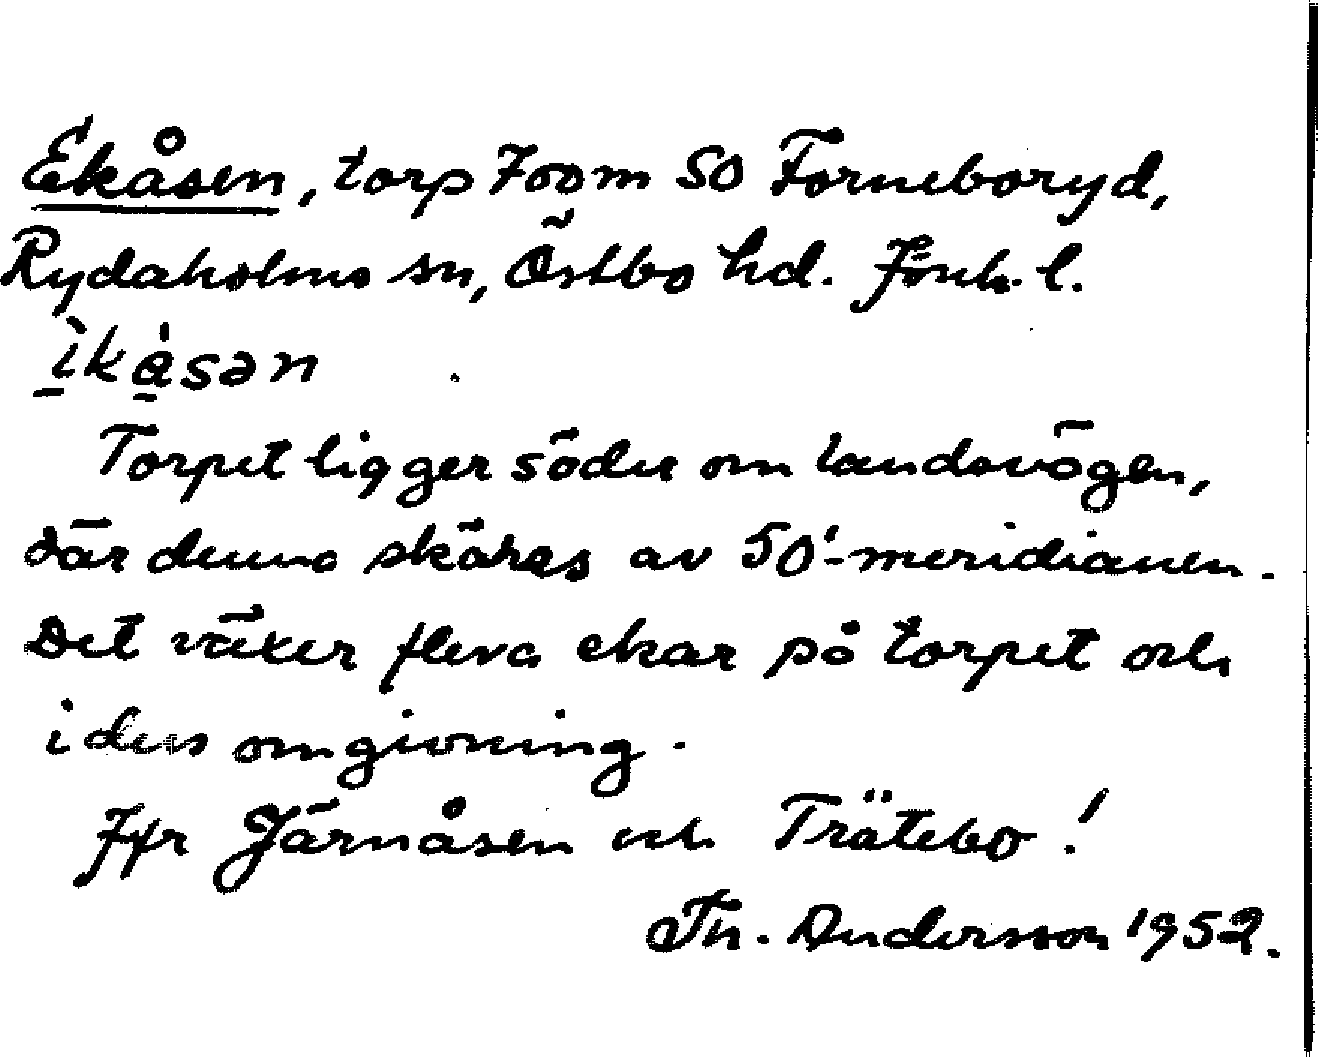 Ekåsen, torp 700 m SO Forneboryd,
Rydaholms sn, Östbo hd. Jönk. l.
i̠kå̠sən
Torpet ligger söder om landsvägen,
där denna skäres av 50'-meridianen.
Det växer flera ekar på torpet och
i dess omgivning.
Jfr Järnåsen och Trätebo!
Th. Andersson 1952.